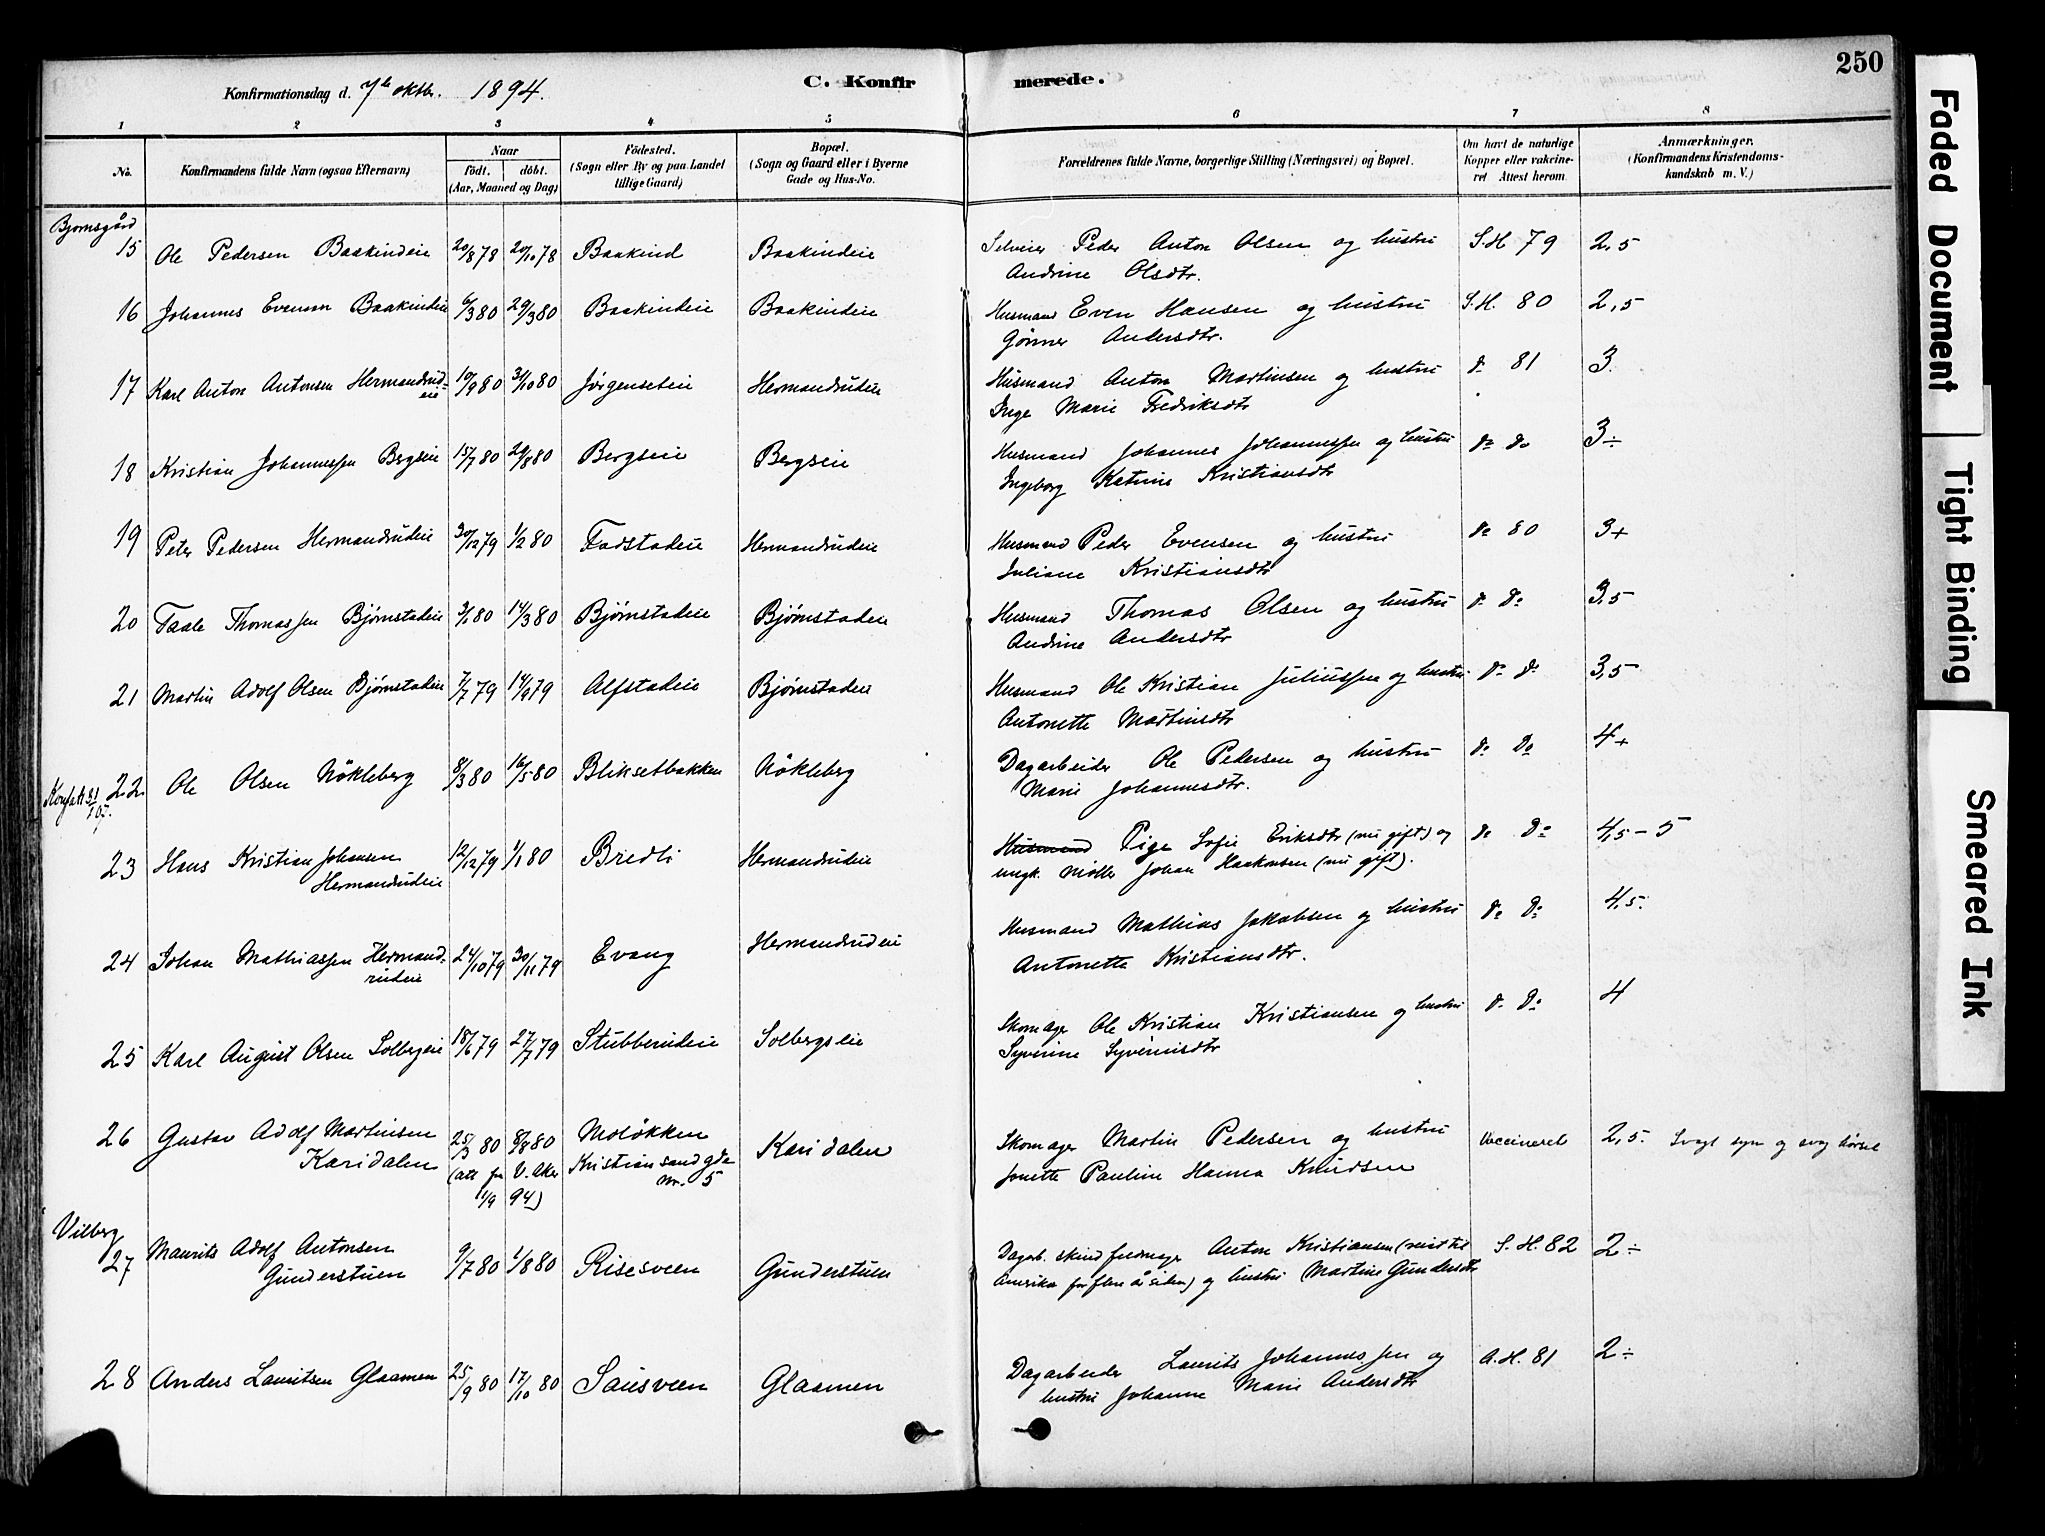 250
Konfirmationsdag d. 7de oktbr. 1894.
C. Konfirmerede.
1 2 3 4 5 6 7 8
No. Konfirmandens fulde Navn (ogsaa Efternavn) Naar født. døbt. (Aar, Maaned og Dag) Fødested. (Sogn eller By og paa Landet tillige Gaard) Bopæl. (Sogn og Gaard eller i Byerne Gade og Hus-No. Forældrenes fulde Navne, borgerlige Stilling (Næringsvei) og Bopæl. Om havt de naturlige Kopper eller vakcineret Attest herom. Anmærkninger. (Konfirmandens Kristendomskundskab m. V.)
Bjornsgård
15 Ole Pedersen Baakindeie 20/8 78 20/10 78 Baakind Baakindeie Selveier Peder Anton Olsen og hustru S.H 79 2,5
Andrine Olsdtr.
16 Johannes Evensen Baakindeie 6/3 80 29/3 80 Baakindeie Baakindeie Husmand Even Hansen og hustru S.H. 80 2,5
Andersdtr.
17 Karl Anton Antonsen Hermandrud- 10/9 80 31/10 80 Jørgenseteie Hermandrudeie Husmand Anton Martinsen og hustru do 81 3.
eie Inge Marie Fredriksdtr
18 Kristian Johannessen Bergseie 15/7 80 29/8 80 Bergseie Bergseie Husmand Johannes Johannessen og hustru do do 3÷
Ingeborg Katrine Kristiansdtr
19 Peter Pedersen Hermandrudeie 30/12 79 1/2 80 Fadstadeie Hermandrudeie Husmand Peder Evensen og hustru do 80 3+
Juliane Kristiansdtr
20 Taale Thomassen Bjørnstadeie 3/1 80 14/3 80 Bjørnstadeie Bjørnstadeie Husmand Thomas Olsen og hustru do do 3,5
Andrine Andersdtr
21 Martin Adolf Olsen Bjørnstadeie 7/7 79 14/9 79 Alfstadeie Bjørnstadeie Husmand Ole Kristian Juliussen og hustru do do 3,5
Antonette Martinsdtr
22. Ole Olsen Nökleberg 8/3 80 16/5 80 Bliksetbakken Nökleberg Dagarbeider Ole Pedersen og hustru do do 4+
Marie Johannesdtr.
23 Hans Kristian Johansen 12/12 79 1/1 80 Bredli Hermandrudeie Husmand Pige Sofie Eriksdtr (nu gift) og do do 4,5-5
Hermandrudeie ungk. Möller Johan Haakonsen (nu gift).
24 Johan Mathiassen Hermand- 24/10 79 30/11 79 Evang Hermandrudeie Husmand Mathias Jakobsen og hustru do do 4,5.
rudeie Antonette Kristiansdtr.
25 Karl August Olsen Solbergeie 18/6 79 27/7 79 Stubberudeie Solbergseie Skomager Ole Kristian Kristiansen og hustru do do 4
Syverine Syverinsdtr
26 Gustav Adolf Martinsen 25/3 80 8/8 80 Moløkken Karidalen Skomager Martin Pedersen og hustru Vaccineret 2,5. Svagt syn og svag hørsel
Karidalen (att fra V. Aker 1/9 94) Kristiansand gde nr. 5 Jonette Pauline Hanna Knudsen
Vilberg
27 Maurits Adolf Antonsen 9/7 80 1/8 80 Risesveen Gunderstuen Dagarb. Anton Kristiansen (reist til S.H. 82 2÷
Gunderstuen Amerika for flere år siden) og hustru Martine Gundersdtr
28 Anders Lauritsen Glaamen 25/9 80 17/10 80 Sausveen Glaamen Dagarbeider Laurits Johannessen og A.H. 81 2÷
hustru Johanne Marie Andersdtr
Faded Document
Tight Binding
Smeared Ink